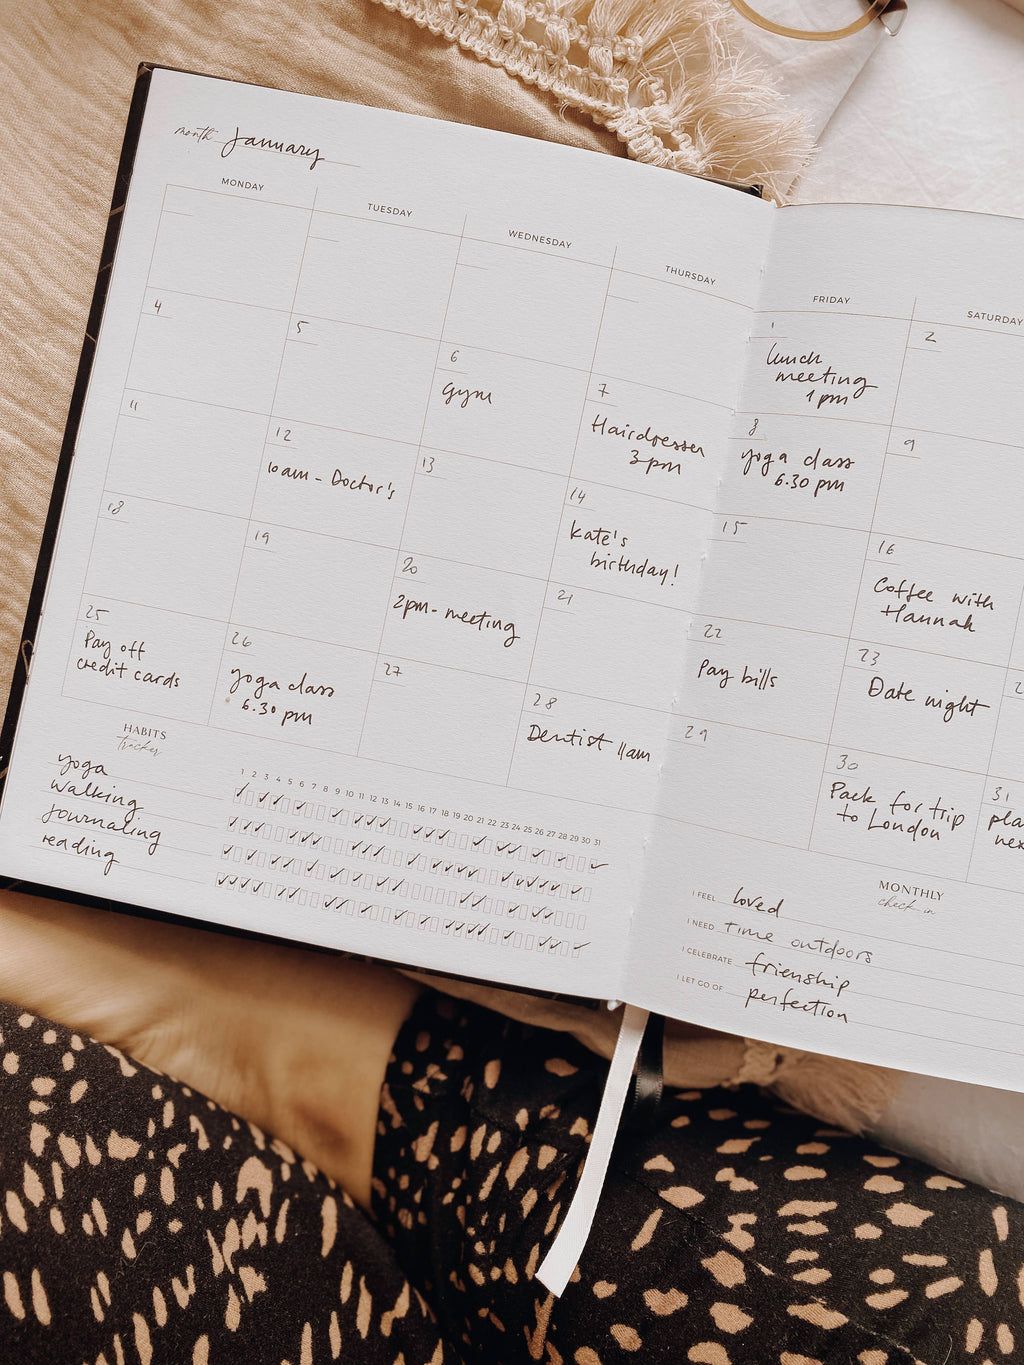 month January
MONDAY TUESDAY WEDNESDAY THURSDAY FRIDAY SATURDAY
1 2
lunch
meeting
1 pm
4 5 6 7 8 9
Gym
Hairdresser
3pm
yoga class
6.30 pm
11 12 13 14 15 16
10am - Doctor's
Kate's
birthday!
Coffee with
Hannah
18 19 20 21 22 23
2pm - meeting
Pay bills
Date night
25 26 27 28 29 30 31
Pay off
credit cards
yoga class
6.30 pm
Dentist 11am
Pack for trip
to London
HABITS
tracker
1 2 3 4 5 6 7 8 9 10 11 12 13 14 15 16 17 18 19 20 21 22 23 24 25 26 27 28 29 30 31
yoga
walking
journaling
reading
MONTHLY
check in
I FEEL loved
I NEED time outdoors
I CELEBRATE frienship
I LET GO OF perfection